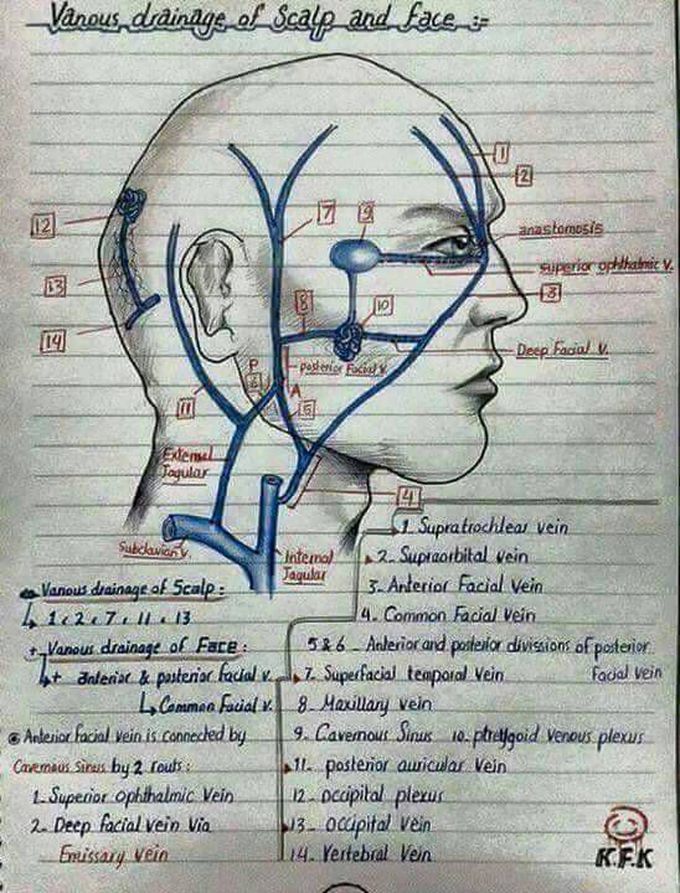 Vanous drainage of Scalp and face :=
1
2
7
9
12
anastomosis
superior ophthalmic v.
13
3
8
10
14
Deep Facial v.
posterior Facial v.
P
6
A
11
5
External
Jagular
4
Subclavian v.
Internal
Jagular
1. Supratrochlear vein
2. Supraorbital vein
3. Anterior Facial Vein
4. Common Facial Vein
5 & 6 - Anterior and posterior divissions of posterior
Facial vein
7. Superfacial temporal Vein
8. Maxillary vein
9. Cavernous Sinus 10. ptretygoid venous plexus
11. posterior auricular Vein
12- occipital plexus
13- occipital Vein
14. Vertebral Vein
Vanous drainage of Scalp :
1 , 2 , 7 , 11 , 13
+ Vanous drainage of Face :
+ anterior & posterior facial v.
Common Facial v.
Anterior facial vein is connected by
Cavernous Sinus by 2 routs :
1. Superior ophthalmic Vein
2. Deep facial vein Via
Emissary vein
K.F.K